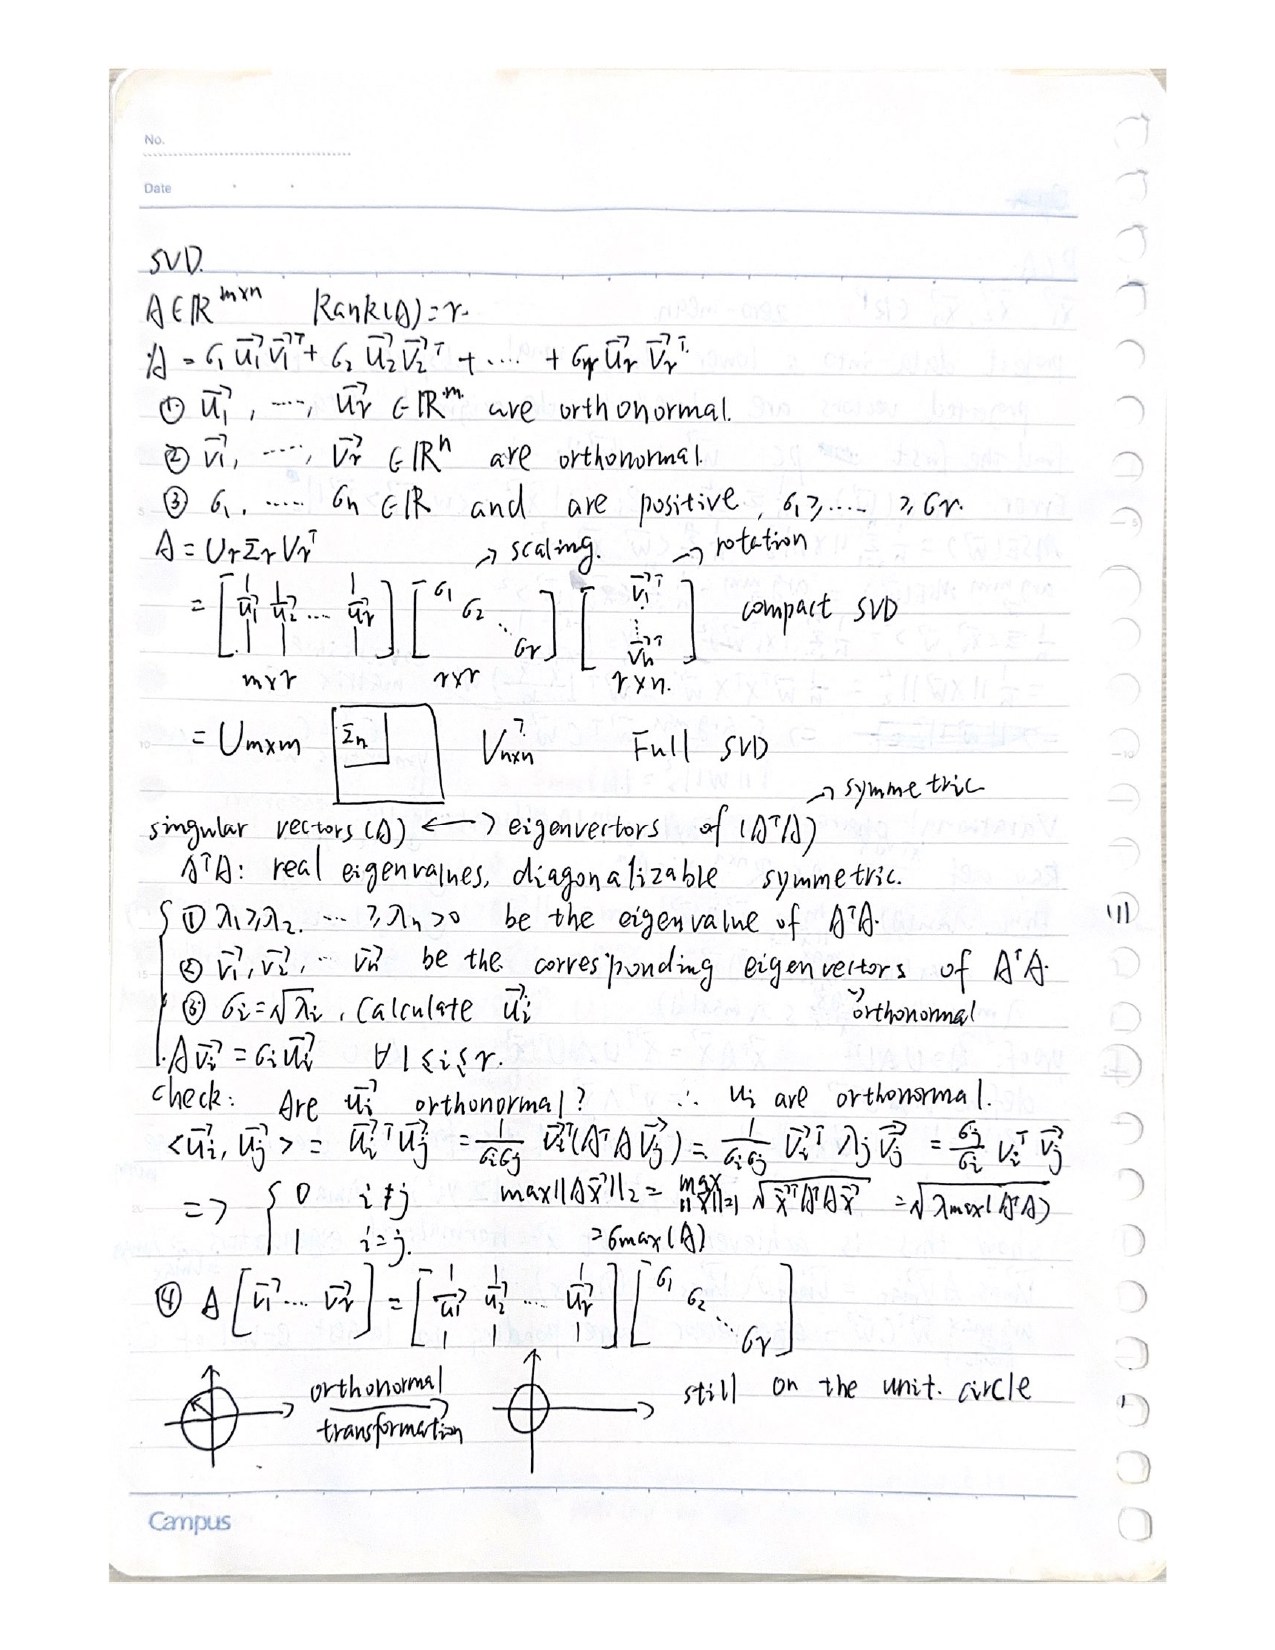 No.
Date
SVD.
A∈ℝ^{m×n} Rank(A)=r.
A = σ₁ u⃗₁ v⃗₁ᵀ + σ₂ u⃗₂ v⃗₂ᵀ + .... + σᵣ u⃗ᵣ v⃗ᵣᵀ
① u⃗₁, ...., u⃗ᵣ ∈ ℝᵐ are orthonormal.
② v⃗₁, ...., v⃗ᵣ ∈ ℝⁿ are orthonormal.
③ σ₁, ..... σₙ ∈ ℝ and are positive, σ₁ ≥ .... ≥ σᵣ.
A = Uᵣ Σᵣ Vᵣᵀ → scaling. → rotation
= [u⃗₁ u⃗₂ ... u⃗ᵣ] [σ₁ σ₂ ... σᵣ] [v⃗₁ᵀ ⋮ v⃗ₙᵀ] compact SVD
m×r r×r r×n.
= U_{m×m} [Σₙ] V_{n×n}ᵀ Full SVD
→ symmetric
singular vectors (A) ←→ eigenvectors of (AᵀA)
AᵀA: real eigenvalues, diagonalizable symmetric.
① λ₁ ≥ λ₂. ... ≥ λₙ > 0 be the eigenvalue of AᵀA.
② v⃗₁, v⃗₂, ... v⃗ₙ be the corresponding eigenvectors of AᵀA.
③ σᵢ = √λᵢ, Calculate u⃗ᵢ orthonormal
Av⃗ᵢ = σᵢ u⃗ᵢ ∀ 1 ≤ i ≤ r.
check: Are u⃗ᵢ orthonormal? ∴ uᵢ are orthonormal.
<u⃗ᵢ, u⃗ⱼ> = u⃗ᵢᵀ u⃗ⱼ = 1/(σᵢσⱼ) v⃗ᵢᵀ(AᵀA v⃗ⱼ) = 1/(σᵢσⱼ) v⃗ᵢᵀ λⱼ v⃗ⱼ = σⱼ/σᵢ vᵢᵀ v⃗ⱼ
=> { 0 i≠j max||Ax⃗||₂ = max_{||x⃗||=1} √(x⃗ᵀAᵀAx⃗) = √(λmax(AᵀA))
1 i=j. = σmax(A)
④ A [v⃗₁ ... v⃗ᵣ] = [u⃗₁ u⃗₂ .... u⃗ᵣ] [σ₁ σ₂ ... σᵣ]
orthonormal still on the unit. circle
transformation
Campus